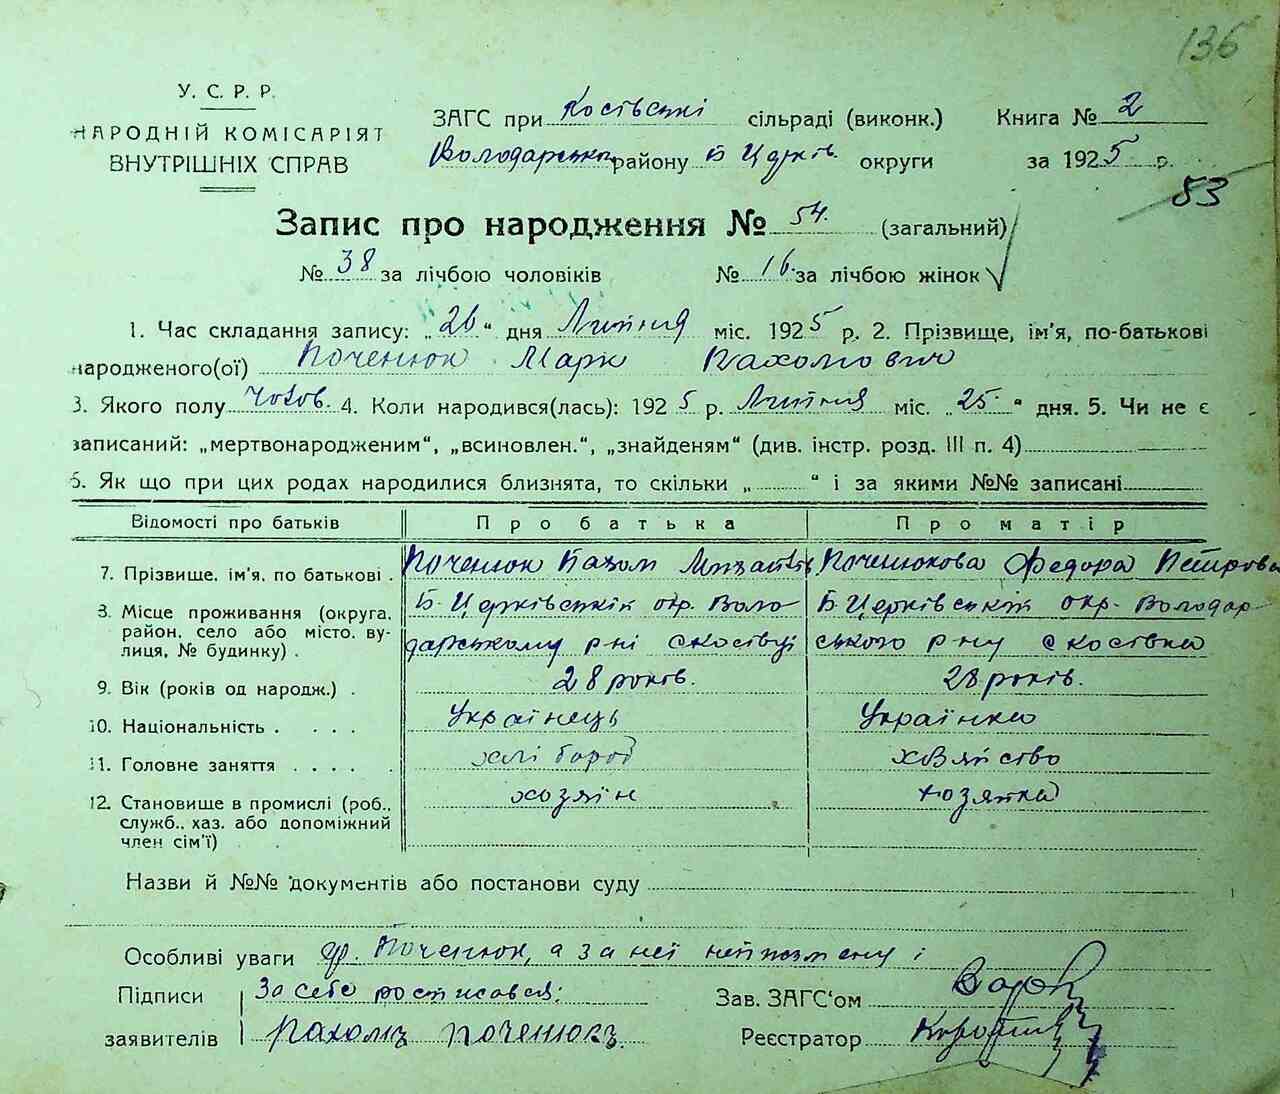 136
У. С. Р. Р.
НАРОДНІЙ КОМІСАРІЯТ
ВНУТРІШНІХ СПРАВ
ЗАГС при Косівській сільраді (виконк.) Книга № 2
Володарськ району Б Церків. округи за 1925 р.
53
Запис про народження № 54. (загальний)
№ 38 за лічбою чоловіків № 16. за лічбою жінок
1. Час складання запису: „26“ дня Липня міс. 1925 р. 2. Прізвище, ім'я, по-батькові
народженого(ої) Поченюк Марк Пахомович
3. Якого полу Чолов. 4. Коли народився(лась): 1925 р. Липня міс. „25“ дня. 5. Чи не є
записаний: „мертвонародженим“, „всиновлен.“, „знайденям“ (див. інстр. розд. III п. 4)
6. Як що при цих родах народилися близнята, то скільки „ “ і за якими №№ записані
Відомості про батьків Про батька Про матір
7. Прізвище, ім'я, по батькові . Поченюк Пахом Михайлів Поченюкова Федора Петрова
8. Місце проживання (округа, Б-Церківській окр. Воло Б-Церківській окр. Володар
район, село або місто, ву- дарському р-ні с Косівці ського р-ну с Косівка
лиця, № будинку) .
9. Вік (років од народж.) . 28 років. 28 років.
10. Національність . . . . Українець Українка
11. Головне заняття . . . . . хлібороб хозяйство
12. Становище в промислі (роб., хозяїн хозяйка
служб., хаз. або допоміжний
член сім'ї)
Назви й №№ документів або постанови суду
Особливі уваги гр. Поченюк, а за неї
Підписи За себе росписався: Зав. ЗАГС'ом
заявителів Пахомъ Поченюкъ. Реєстратор